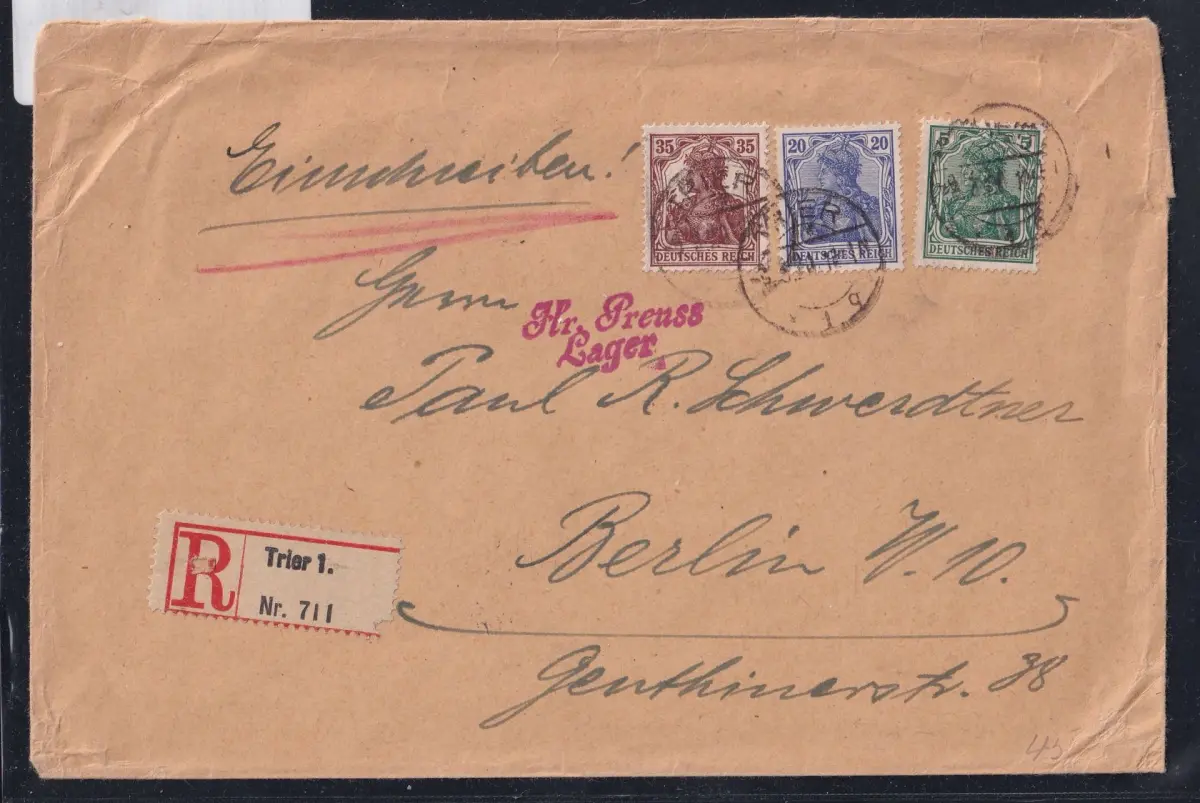 Einschreiben!
35 35
DEUTSCHES REICH
20 20
DEUTSCHES REICH
5 5
DEUTSCHES REICH
TRIER
TRIER
Herrn
Hr. Preuss
Lager.
Paul R. Schwerdtner
Berlin W. 10.
Genthinerstr. 38
R
Trier 1.
Nr. 711
43